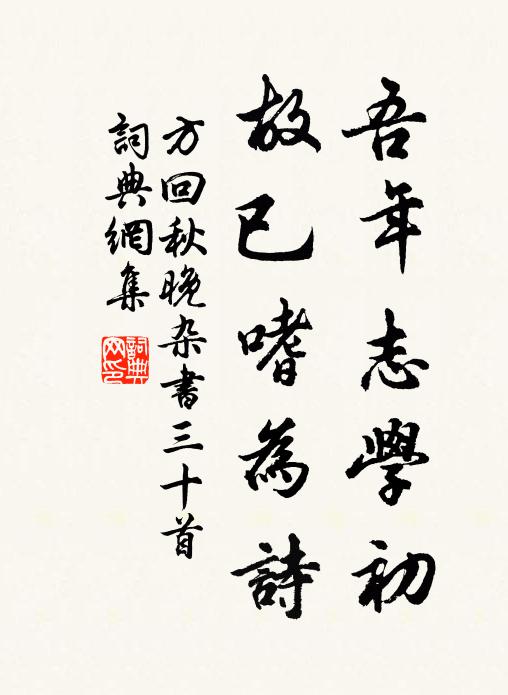 吾年志學初
故已嗜為詩
方回秋晚杂書三十首
詞典網集
詞典網印